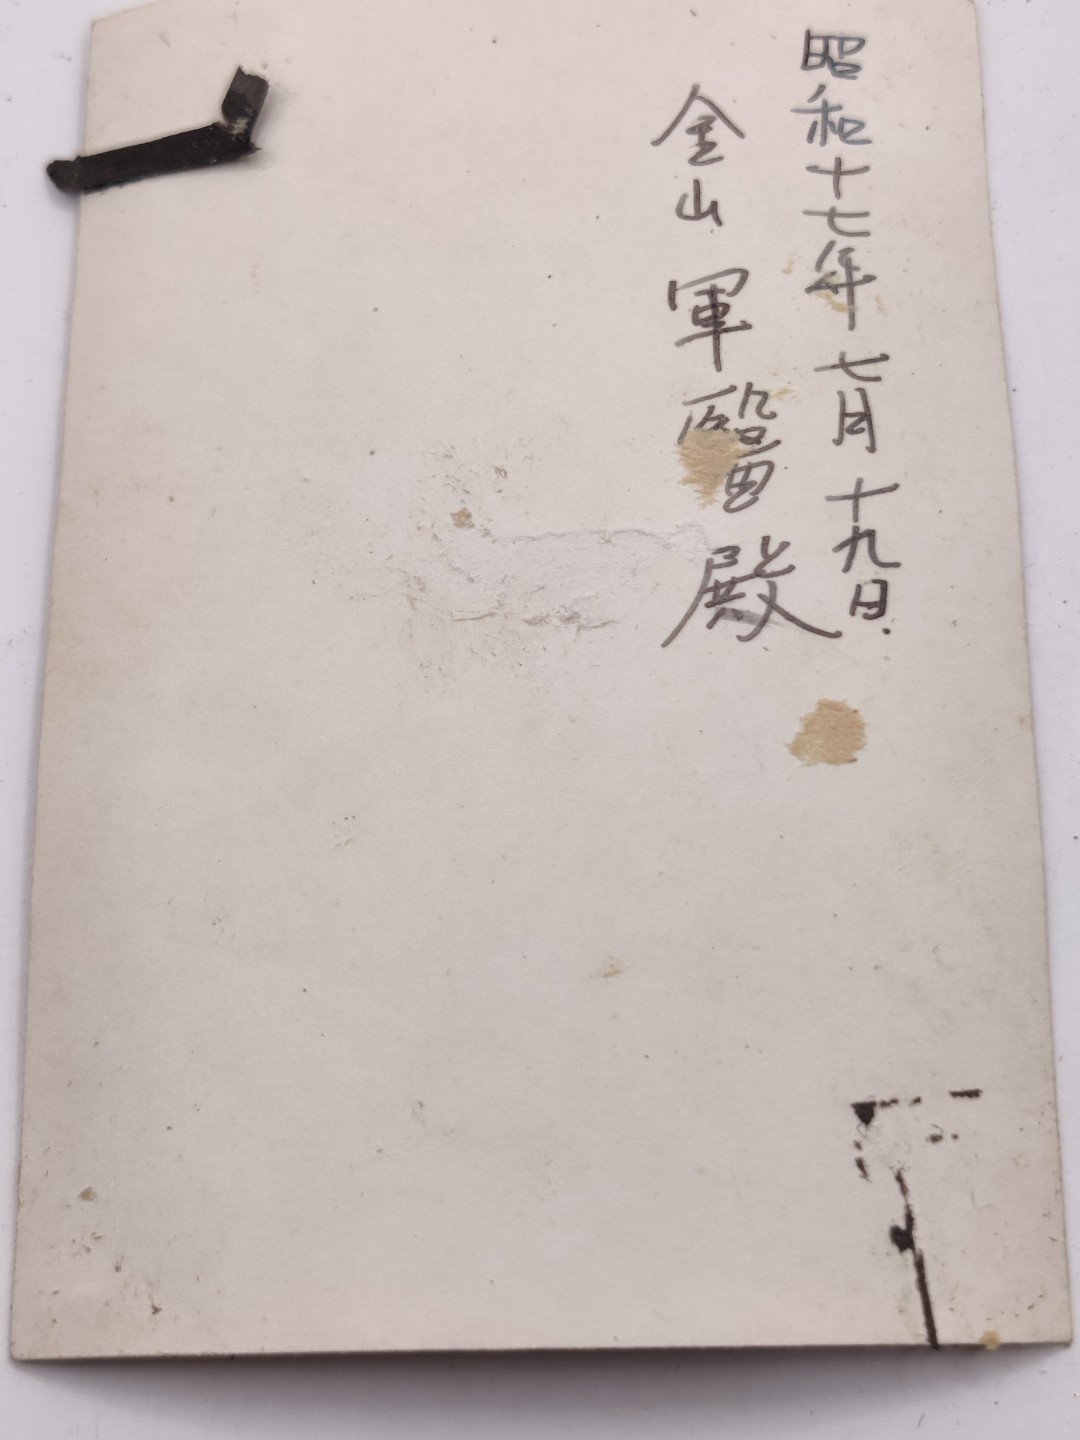 昭和十七年七月十九日.
金山軍醫殿